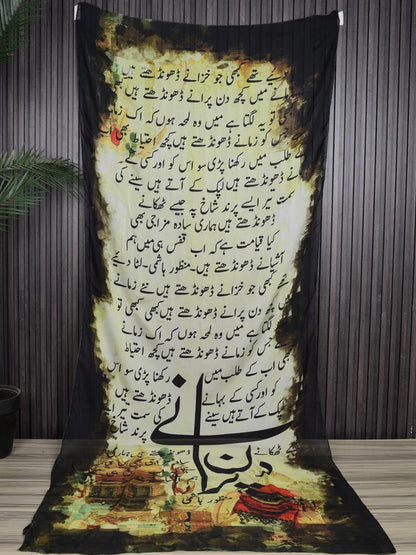 دبے تھے کبھی جو خزانے ڈھونڈھتے ہیں
زمانے میں کچھ دن پرانے ڈھونڈھتے ہیں
کبھی تو یہ لگتا ہے میں وہ لمحہ ہوں کہ اک زمانے
جس کو زمانے ڈھونڈھتے ہیں کچھ احتیاط بھی اب
طلب میں رکھنا پڑی سو اس کو اور کسی کے
ڈھونڈھتے ہیں لپک کے آتے ہیں سینے کی
سمت تیر ایسے پرند شاخ پہ جیسے ٹھکانے
ڈھونڈھتے ہیں ہماری سادہ مزاجی بھی
کیا قیامت ہے کہ اب قفس ہی میں ہم
آشیانے ڈھونڈھتے ہیں۔ منظور ہاشمی۔ لٹا دیے
تھے کبھی جو خزانے ڈھونڈھتے ہیں نئے زمانے
کچھ دن پرانے ڈھونڈھتے ہیں کبھی کبھی تو
لگتا ہے میں وہ لمحہ ہوں کہ اک زمانے
جس کو زمانے ڈھونڈھتے ہیں کچھ احتیاط
بھی اب کے طلب میں رکھنا پڑی سو اس
کو اور کسی کے بہانے ڈھونڈھتے ہیں
لپک کے آتے ہیں سینے کی سمت تیر
پرند شاخ
ٹھکانے
دن پرانے
منظور